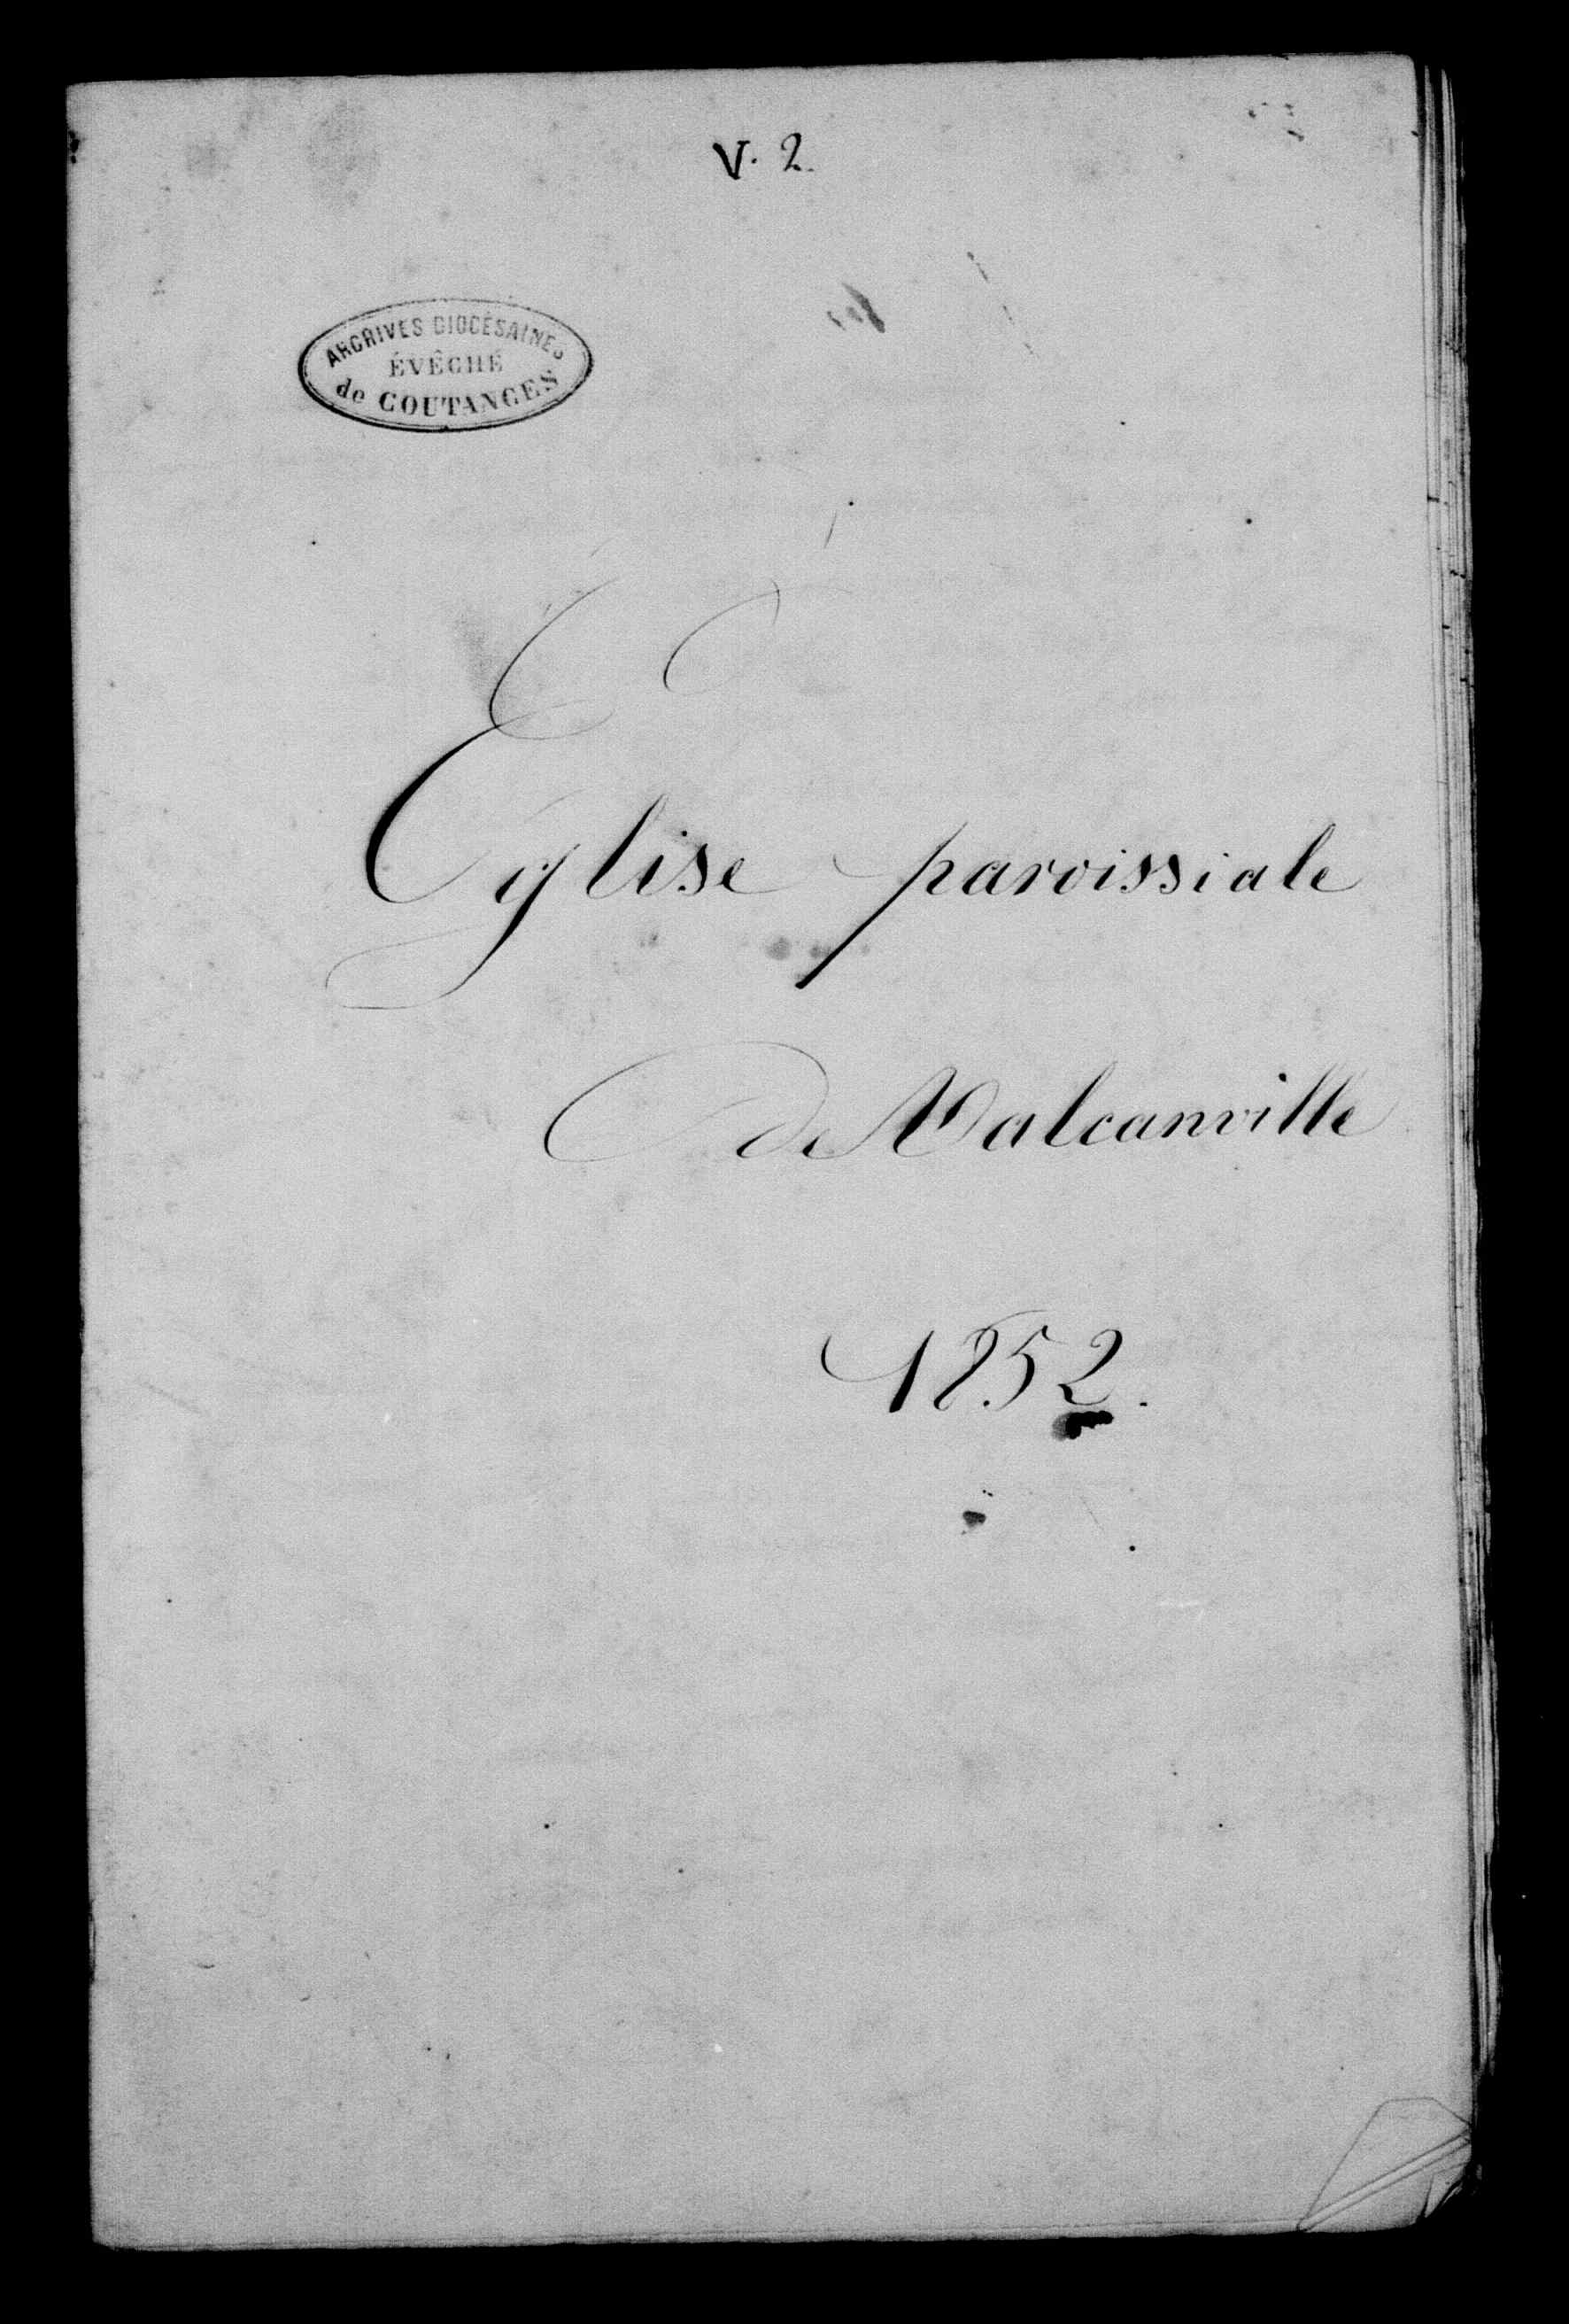 V. 2.
ARCHIVES DIOCÉSAINES
ÉVÊCHÉ
de COUTANCES
Eglise paroissiale
de Valcanville
1852.